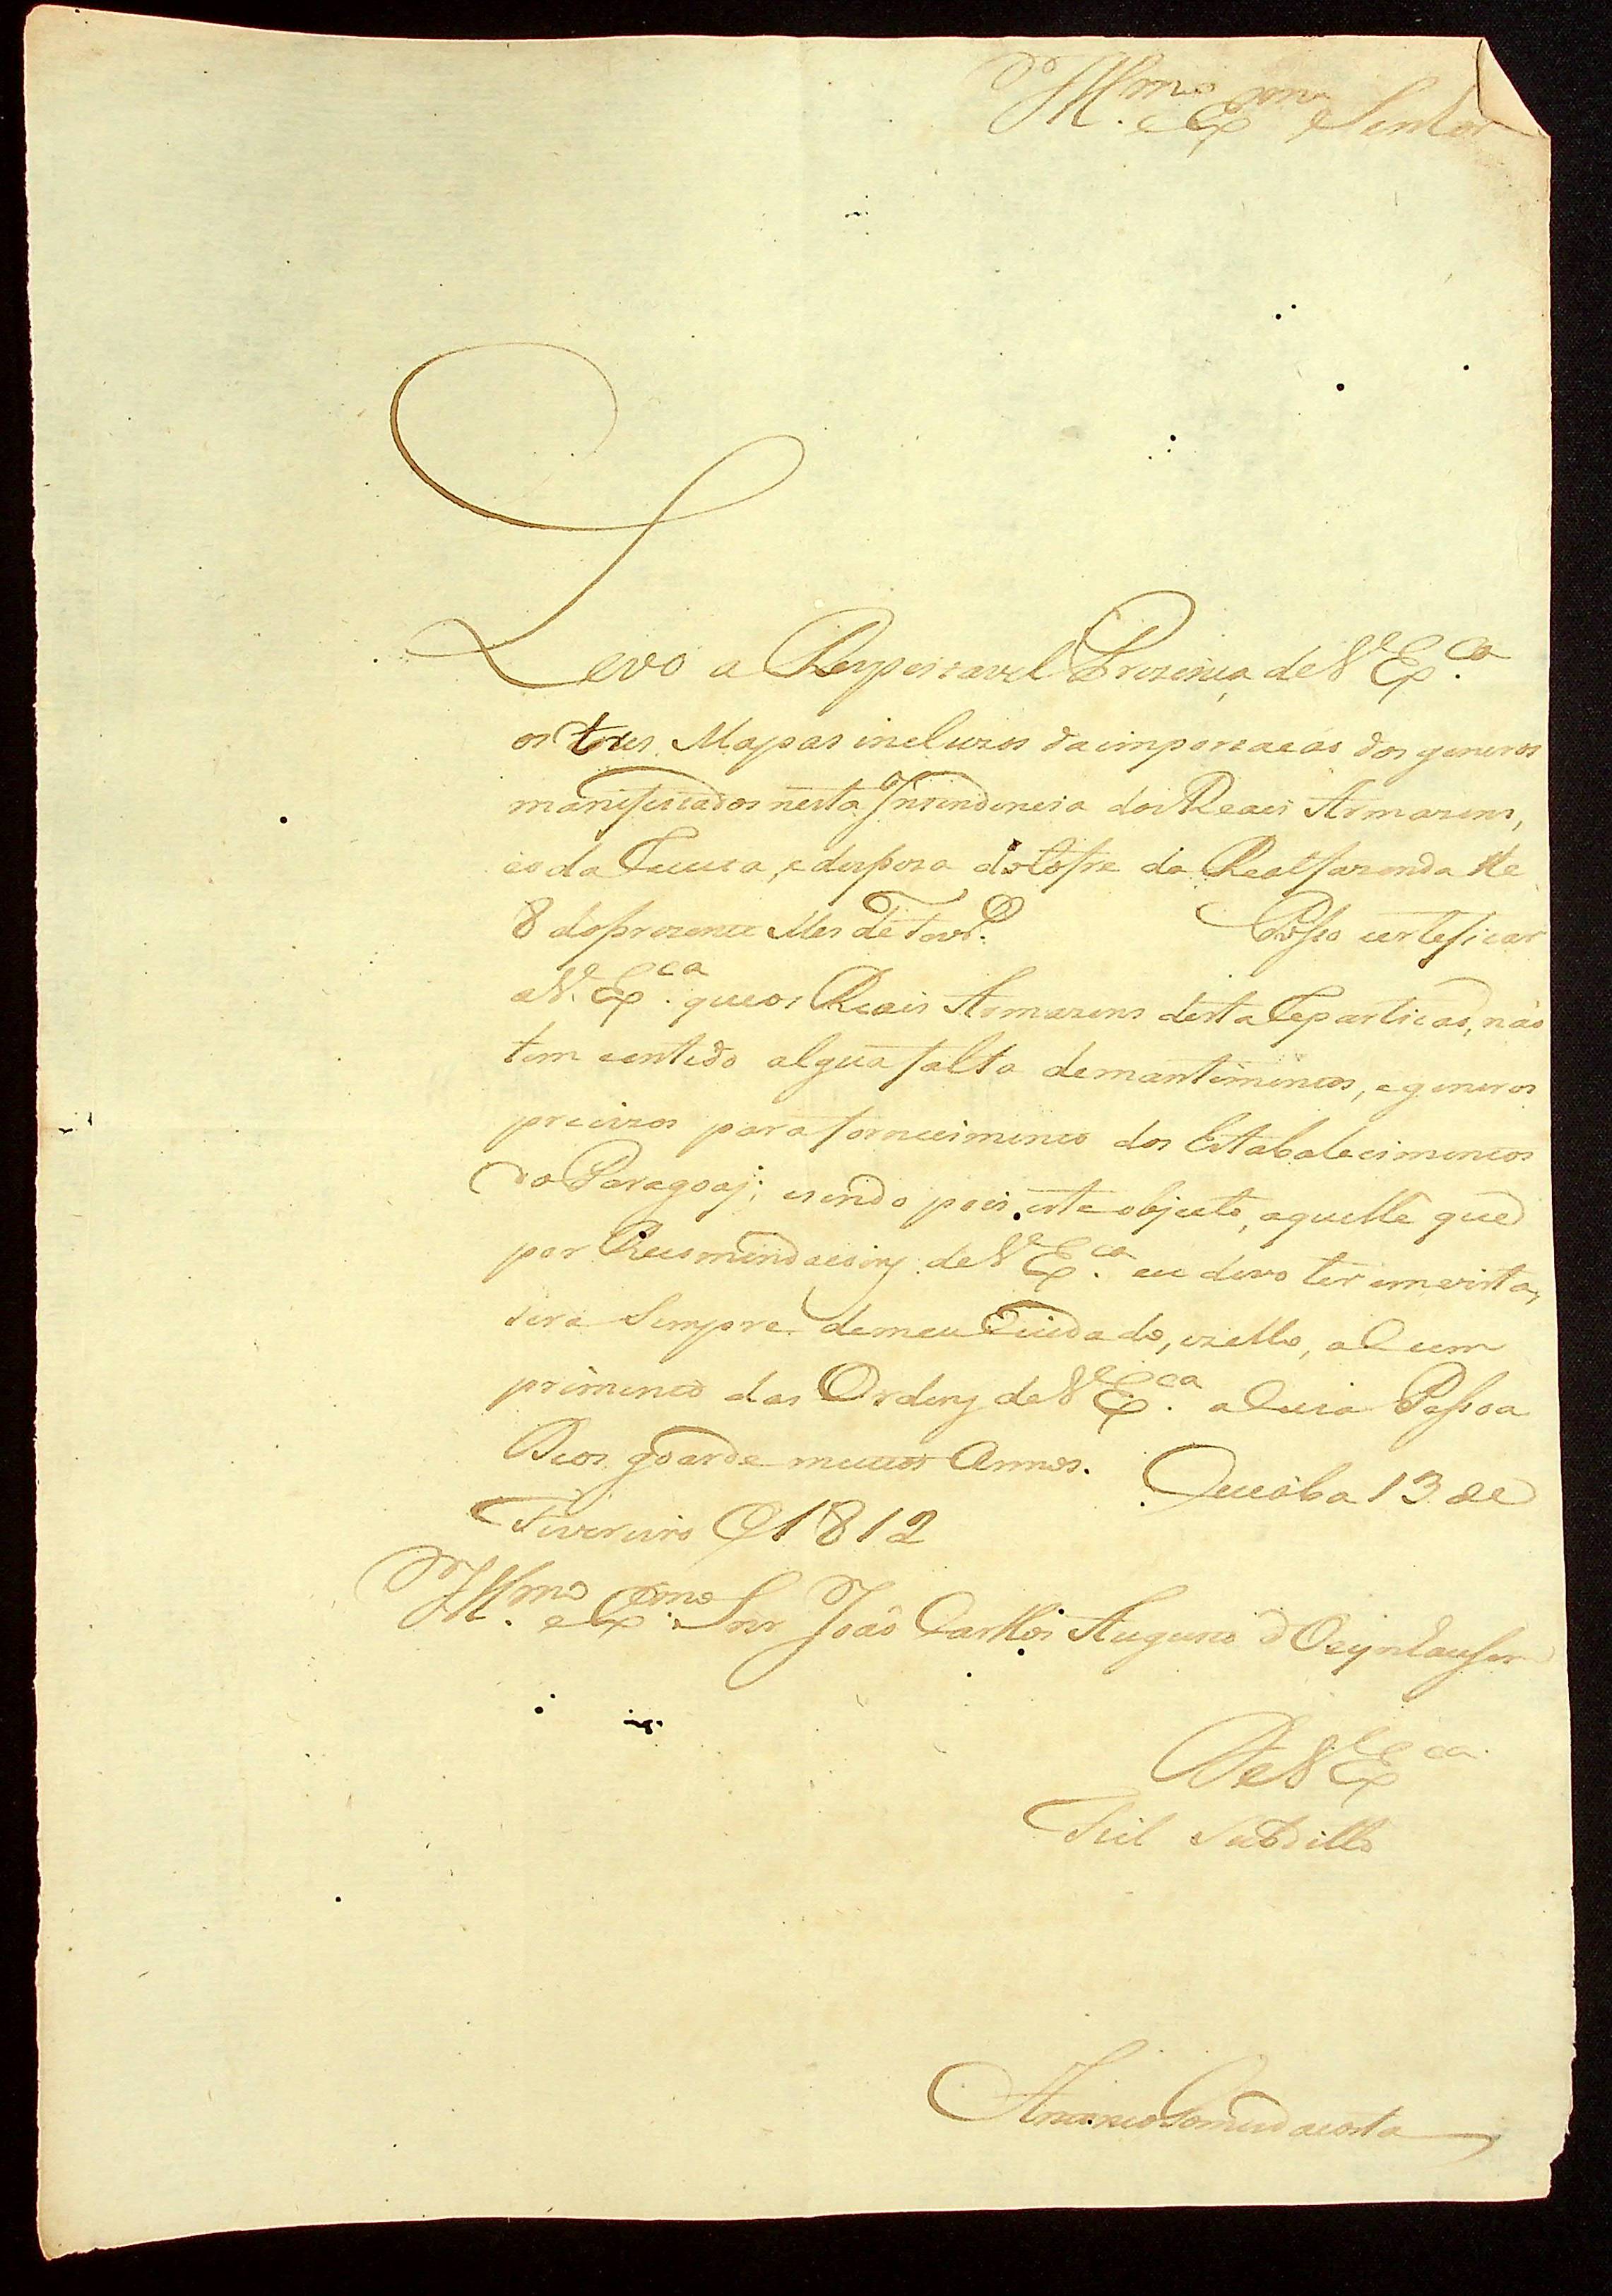 Ill.mo e Ex.mo Senhor
Levo a Respeitavel Prezença de V.ª Ex.ca
os tres Mapas incluzos da importacaõ dos generos
manifestados nesta Intendencia dos Reais Armazens,
eo da Receita, e despeza do Cofre da Real fazenda the
8 do prezente Mes de Fevr.º Posso certeficar
a V. Ex.ca que os Reais Armazens desta Repartiçaõ, naõ
tem sentido algũa falta de mantimentos, e generos
precizos para fornecimento dos Estabalecimentos
do Paragoaj; e sendo pois este objecto, aquelle que
por Recomendacoins de V.ª Ex.ca eu devo ter em vista,
sera sempre de meu Cuidado, e zello, o Cum
primento das Ordens de V.ª Ex.ca a Cuia Pessoa
Deos goarde muitos Annos. Cuiaba 13 de
Fevereiro de 1812
Ill.mo e Ex.mo Snr. Joaõ Carllos Augusto d'Oeynhausen
De V.ª Ex.ca
Fiel Subdillo
Antonio Gomes da Costa